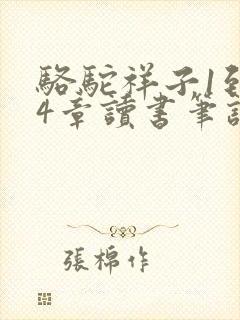 駱駝祥子1到
4章讀書筆記
張棉作